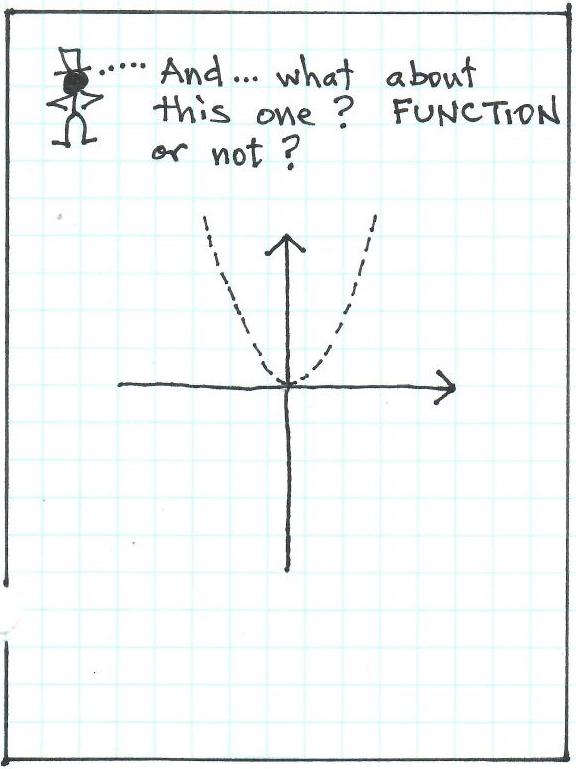 And... what about
this one? FUNCTION
or not?